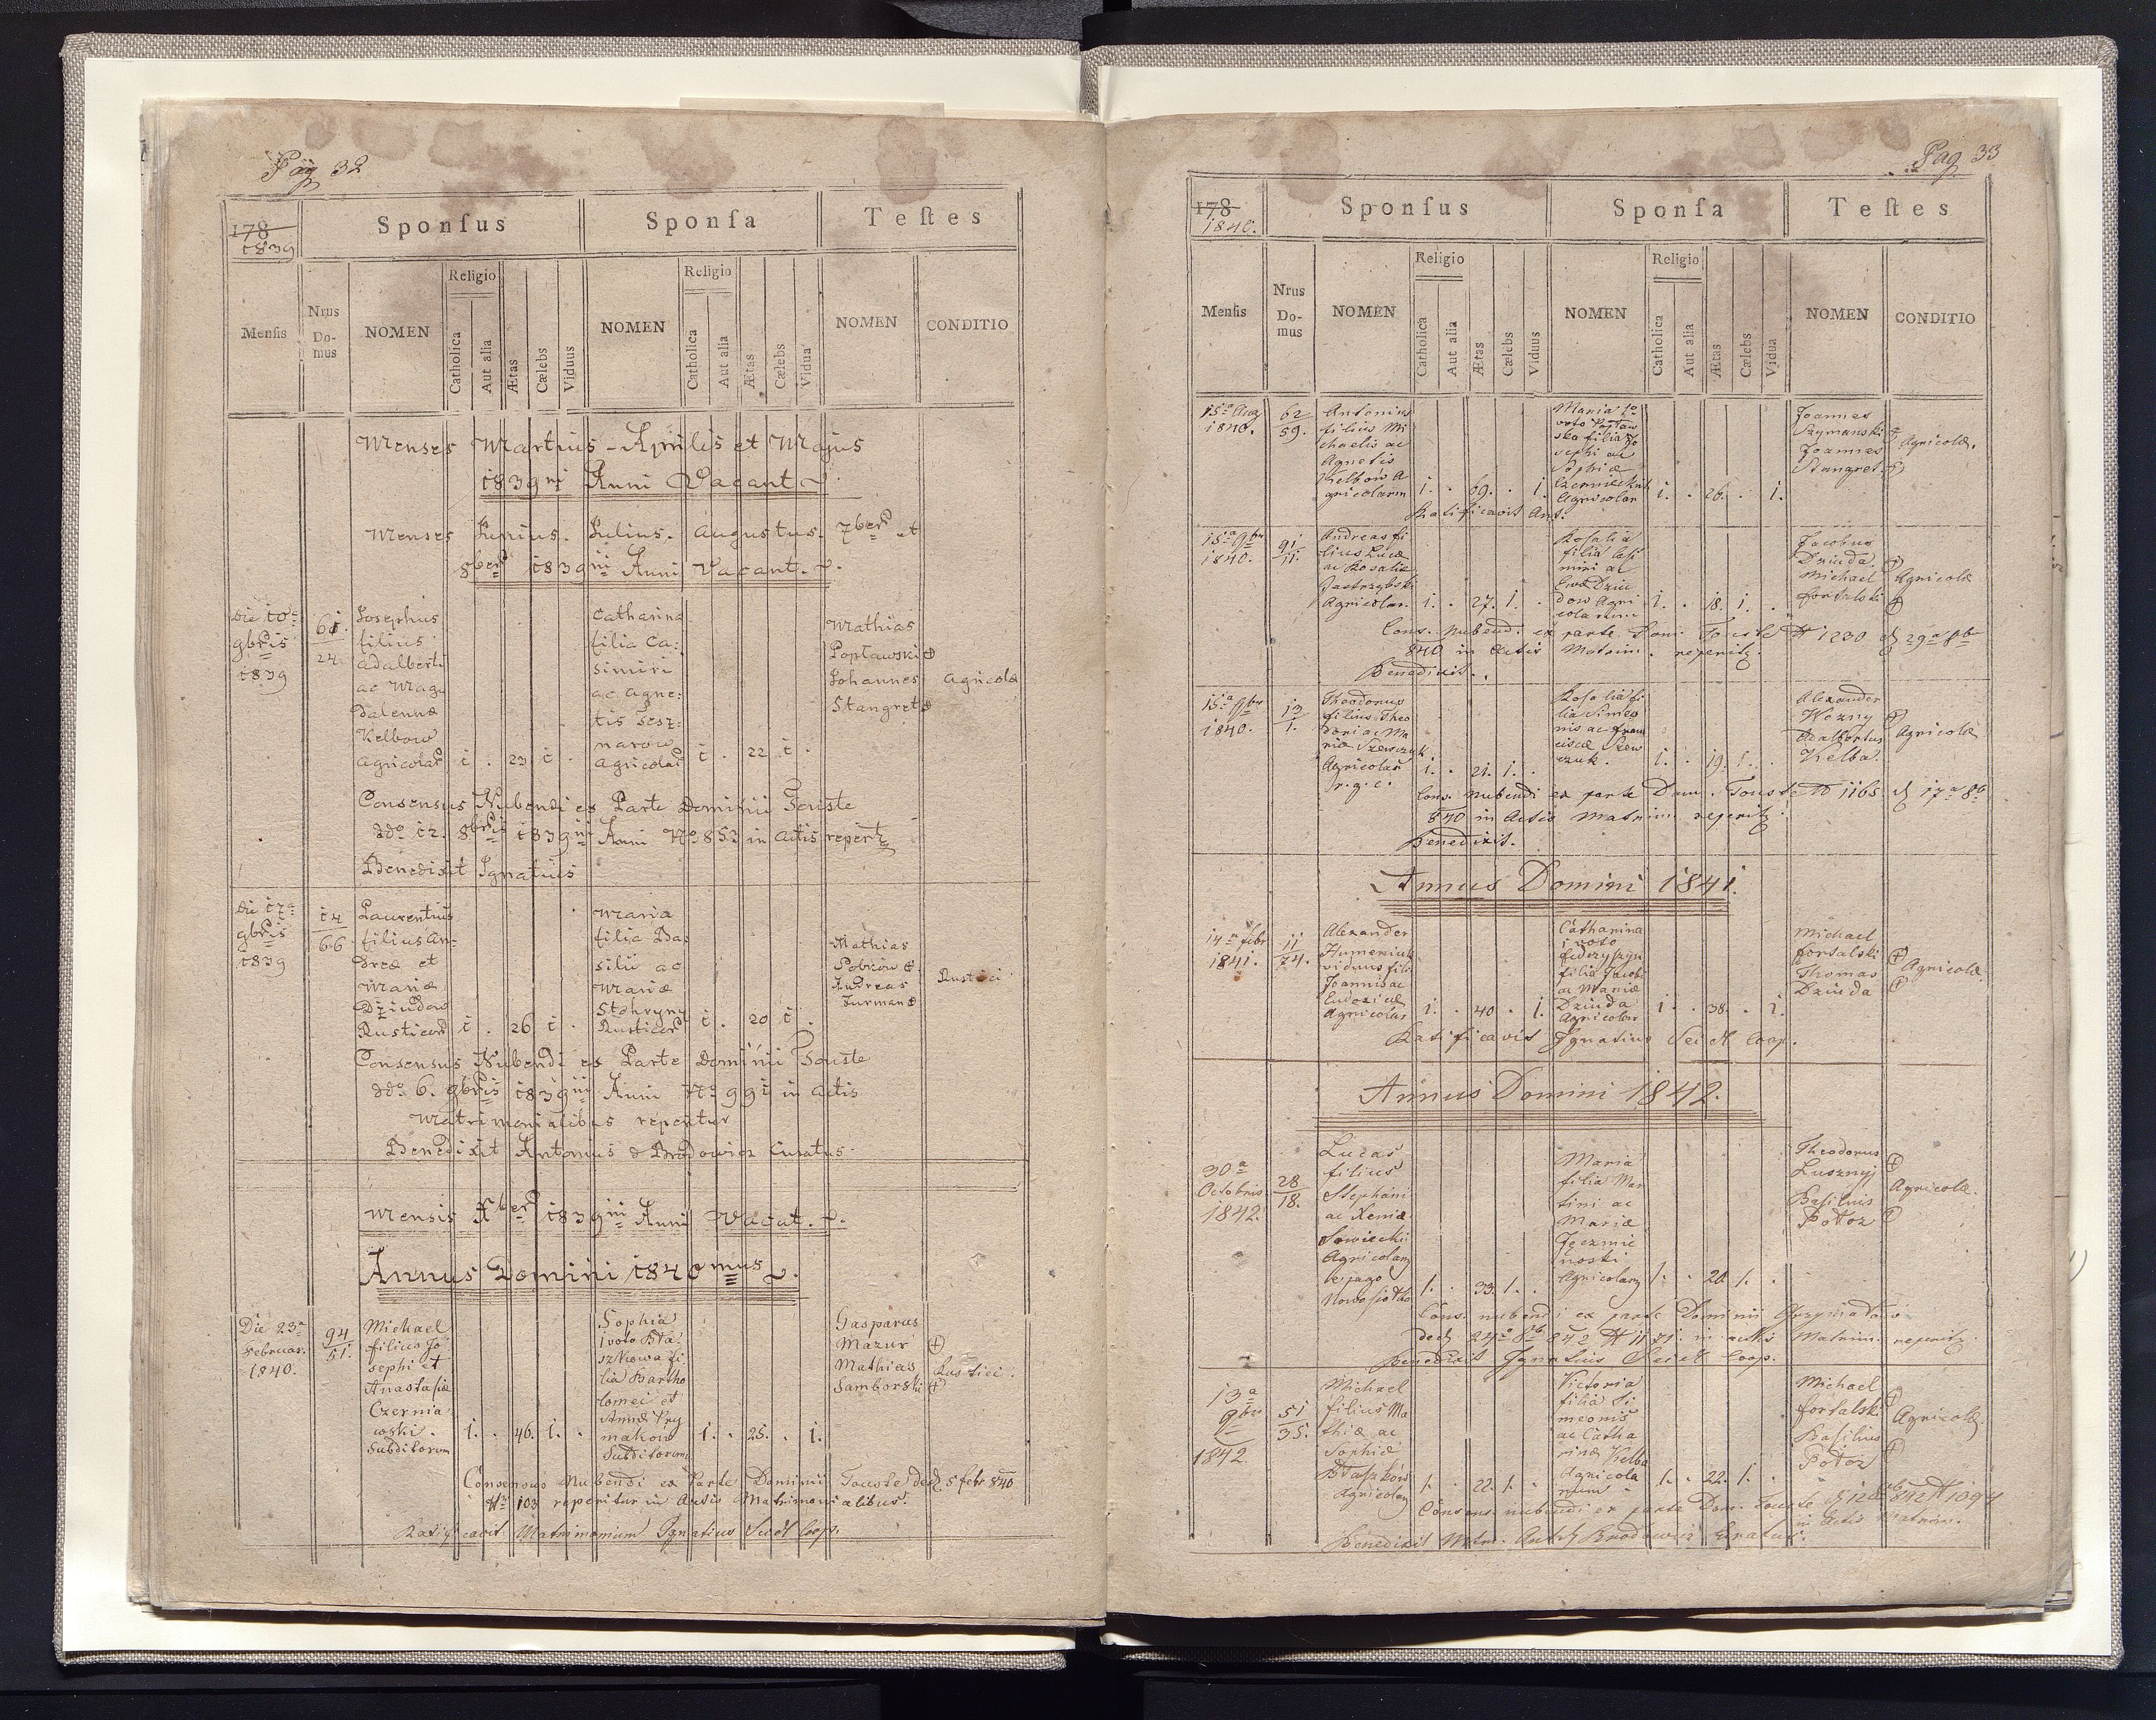 Pag 32
178
1839
Sponſus
Sponſa
Teſtes
Menſis
Nrus Domus
NOMEN
Religio
Catholica
Aut alia
Ætas
Cælebs
Viduus
NOMEN
Religio
Catholica
Aut alia
Ætas
Cælebs
Vidua
NOMEN
CONDITIO
Menses Martius - Aprilis et Majus
1839ni Anni Vacant
Menses Junius. Julius. Augustus. 7ber et
8ber 1839ni Anni Vacant.
Die 10a
9bris
1839
61.
24.
Josephus
filius
Adalberti
ac Mag
dalennæ
Kelbow
Agricolar
1 . 23 1 .
Catharina
filia Ca:
simiri
ac Agne:
tis
narow
Agricolar
1 . 22 1 .
Mathias
Popławski
Johannes
Stangret
Agricolæ
Consensus Nubendi ex Parte Dominii Touste
ddo 12. 8bris 1839ni Anni No 853 in actis repertz
Benedixit Ignatius
Die 17a
9bris
1839
14
66
Laurentius
filius An:
dreæ et
Mariæ
Dziudow
Rusticor
1 . 26 1 .
Maria
filia Ba:
silii ac
Mariæ
Rusticor
1 . 20 1 .
Mathias
Andreas
Furmane
Rustici
Consensus Nubendi ex Parte Dominii Touste
ddo 6. 9bris 1839ni Anni No 991 in actis
Matrimonialibus repertur
Benedixit Antonius Brodowicz Curatus
Mensis Xber 1839ni Anni Vacat.
Annus Domini 1840mus
Die 23a
Februar.
1840.
94
51.
Michael
filius Jo
sephi et
Anastasiæ
Czernia
wski.
Subditorum
1. . 46. 1. .
Sophia
1 voto Bła
szkowa fi
lia Bartho
lomei et
Annæ Pry
makow
Subditorum
1. . 25. . 1.
Gasparus
Mazur
Mathias
Samborski
Rustici.
Consensus Nubendi ex Parte Dominii Touste 5 febr 840
No 103 reperitur in Actis Matrimonialibus.
Ratificavit Matrimonium Ignatius Seidt Coop.
Pag 33
178
1840.
Sponſus
Sponſa
Teſtes
Menſis
Nrus Domus
NOMEN
Religio
Catholica
Aut alia
Ætas
Cælebs
Viduus
NOMEN
Religio
Catholica
Aut alia
Ætas
Cælebs
Vidua
NOMEN
CONDITIO
15a Aug
1840.
62
59.
Antonius
filius Mi
chaelis ac
Agnetis
Kelbów A
gricolarum
1. . 69. . 1.
Maria
voto Popław
ska filia Jo
sephi ac
Sophiæ
Agricolar
1. . 26. . 1.
Joannes
Szymanski
Joannes
Stangret
Agricolæ.
Ratificavit Ant.
15a 9br
1840.
91
11.
Andreas fi
lius Lucæ
ac Rosaliæ
Jastrzębski
Agricolar.
1. . 27. 1. .
Rosalia
filia Casi
miri ac
Evæ Dziu
dow Agri
colarum
1. . 18. 1. .
Jacobus
Dziuda
Michael
Forsalski
Agricolæ
Cons. nubend. ex parte Dom. Touste No 1230 29a 8br
840 in Actis Matrim. reperitz.
Benedixit.
15a 9br
1840.
13
1.
Theodorus
filius Theo
dori ac Ma
riæ Szewczyk
Agricolar
r. g. c.
1. . 21. 1. .
Rosalia fi
lia Simeo
nis ac Fran
ciscæ Szew
czuk.
1. . 19. 1. .
Alexander
Wozny
Adalbertus
Kelba.
Agricolæ
Cons. nubendi ex parte Dom. Touste No 1165 17a 8b
840 in Actis Matrim. reperitz.
Benedixit.
Annus Domini 1841.
14a febr
1841.
11
74.
Alexander
Humeniuk
viduus fili
Joannis ac
Eudoxiæ
Agricolar
1. . 40 . 1.
Catharina
1 voto
filia Jacobi
ac Mariæ
Dziuda
Agricolar
1. . 38. . 1.
Michael
Forsalski
Thomas
Dziuda
Agricolæ
Ratificavit Ignatius Seidt Coop.
Annus Domini 1842.
30a
Octobris
1842.
28
18.
Lucas
filius
Stephani
ac Xeniæ
Sowiecki
Agricolarz
Nowosiołka
1. . 33. 1. .
Maria
filia Mar
tini ac
Mariæ
Jęczmie
nioski
Agricolarz
1. . 20. 1. .
Theodorus
Lusznyj
Basilius
Potoz
Agricolæ.
Cons. nubendi ex parte Dominii
24a 8b 842 No 1171. in actis Matrim. reperitz.
Benedixit Ignatius Seidt Coop.
13a
9br
1842
51
35.
Michael
filius Ma
thiæ ac
Sophiæ
Błaszków
Agricolarz
1. . 22. 1. .
Victoria
filia Si
meonis
ac Catha
rinæ Kelba
Agricola
rum
1. . 22. 1. .
Michael
Forsalski
Basilius
Potoz
Agricolæ
Consens. nubendi ex parte Dom. Touste 12 842 No 1094
in Actis Matrim.
Benedixit Matr. Ant. Brodowicz Curatus.